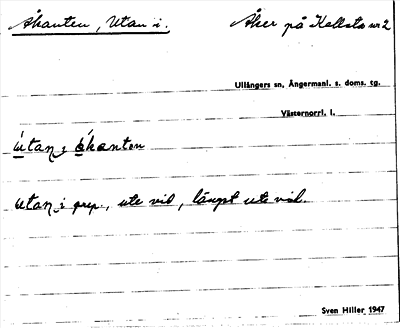 Åkanten, Utan i.
Åker på Kallsta nr 2
Ullångers sn, Ångermanl. s. doms. tg.
Västernorrl. l.
útan i åkanten
utan i prep., ute vid, längst ute vid.
Sven Hiller 1947